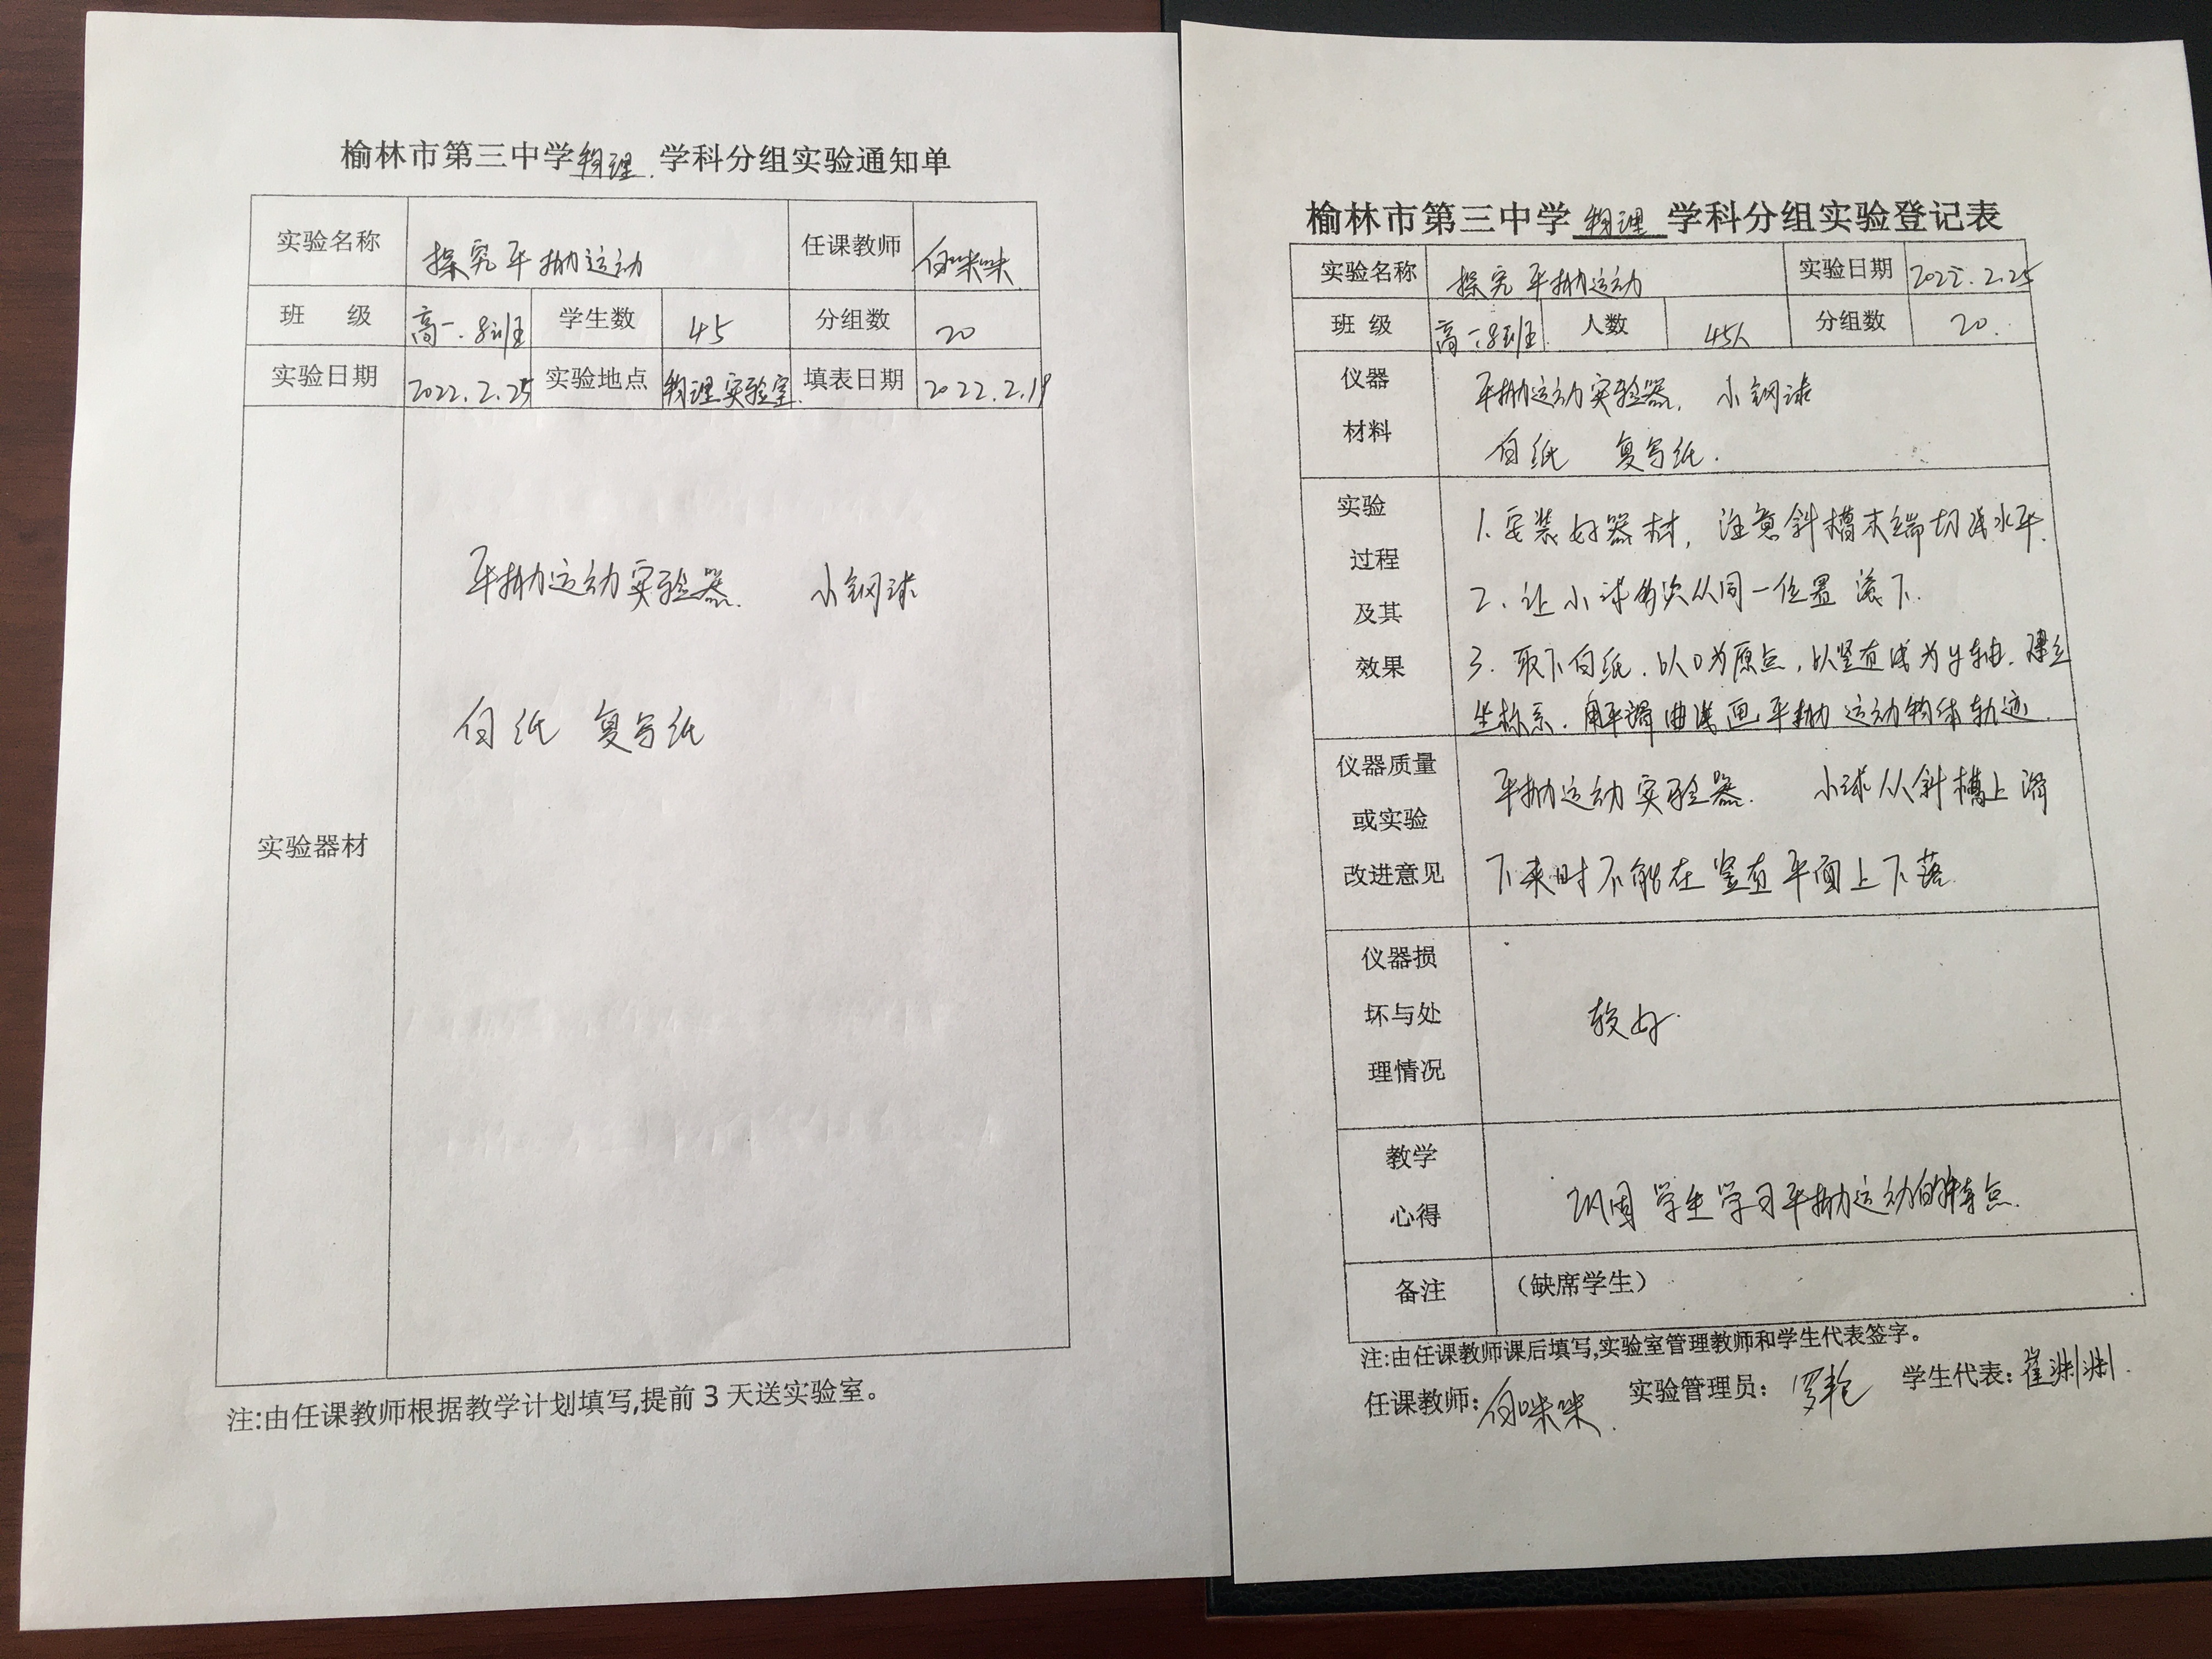 榆林市第三中学物理 学科分组实验通知单
实验名称 探究平抛运动 任课教师 白咪咪
班 级 高一.8班 学生数 45 分组数 20
实验日期 2022.2.25 实验地点 物理实验室. 填表日期 2022.2.19
实验器材
平抛运动实验器. 小钢球
白纸 复写纸
注:由任课教师根据教学计划填写,提前3天送实验室。
榆林市第三中学 物理 学科分组实验登记表
实验名称 探究平抛运动 实验日期 2022.2.25
班 级 高一8班 人数 45人 分组数 20.
仪器
材料
平抛运动实验器. 小钢球
白纸 复写纸.
实验
过程
及其
效果
1.安装好器材，注意斜槽末端切线水平.
2、让小球多次从同一位置滚下.
3. 取下白纸.以O为原点，以竖直线为y轴.建立
坐标系.用平滑曲线画平抛运动物体轨迹.
仪器质量
或实验
改进意见
平抛运动实验器. 小球从斜槽上滑
下来时不能在竖直平面上下落.
仪器损
坏与处
理情况
较好.
教学
心得
巩固学生学习平抛运动的特点.
备注
（缺席学生）
注:由任课教师课后填写,实验室管理教师和学生代表签字。
任课教师: 白咪咪. 实验管理员: 罗艳 学生代表: 崔渊渊.